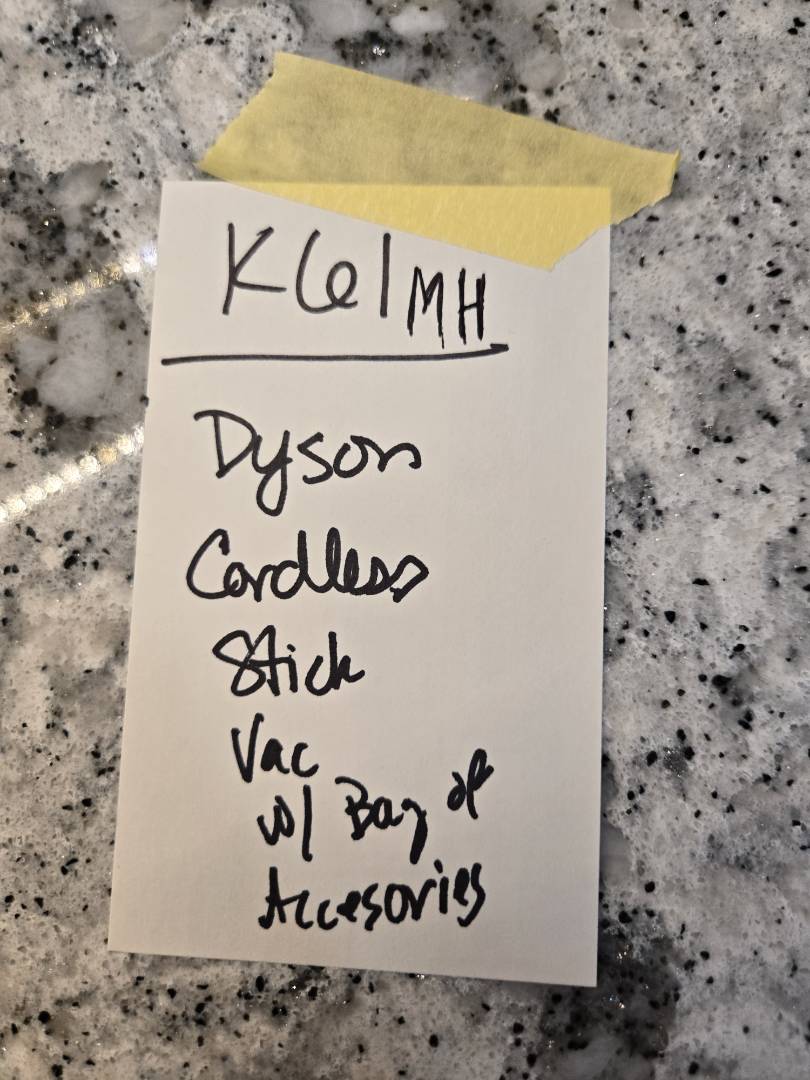 K61 MH
Dyson
Cordless
Stick
Vac
w/ Bag of
Accesories